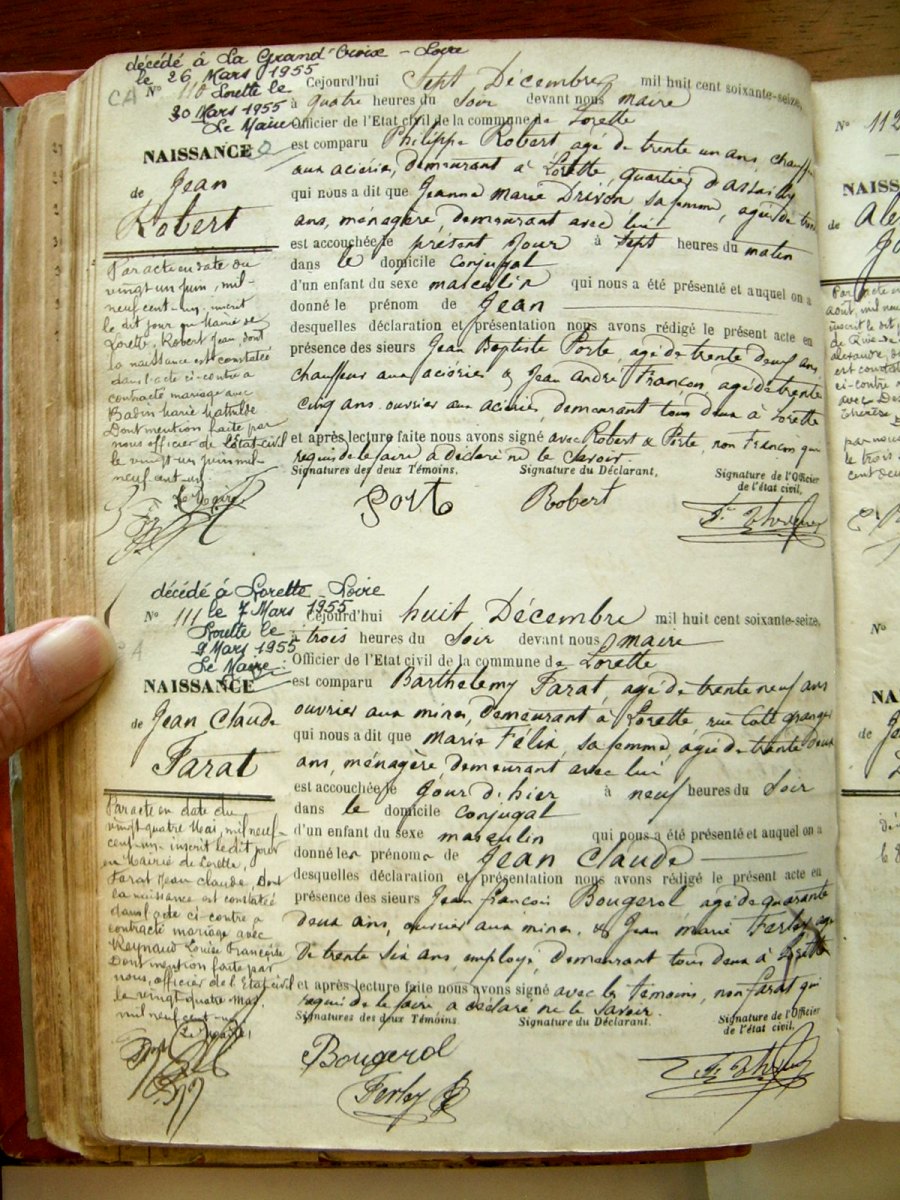 décédé à La Grand'Croix - Loire
le 26 Mars 1955
CA N° 110 Lorette le
30 Mars 1955
Le Maire
NAISSANCE
de Jean
Robert
Cejourd'hui Sept Décembre mil huit cent soixante-seize,
à quatre heures du Soir devant nous maire
Officier de l'Etat civil de la commune de Lorette
est comparu Philippe Robert agé de trente un ans, chauff
aux aciéries, demeurant à Lorette, quartier d'Assailly
qui nous a dit que Jeanne Marie Drivon sa femme, agée de trois
ans, ménagère, demeurant avec lui
est accouchée le présent Jour à Sept heures du matin
dans le domicile conjugal
d'un enfant du sexe masculin qui nous a été présenté et auquel on a
donné le prénom de Jean
desquelles déclaration et présentation nous avons rédigé le présent acte en
présence des sieurs Jean Baptiste Porte, agé de trente deux ans
chauffeur aux aciéries & Jean André Françon agé de trente
cinq ans ouvrier aux aciéries, demeurant tous deux à Lorette
et après lecture faite nous avons signé avec Robert & Porte, non Françon qui
requis de le faire a déclaré ne le Savoir.
Signatures des deux Témoins. Signature du Déclarant, Signature de l'Officier
de l'état civil,
Port Robert
Par acte en date du
vingt un juin, mil-
neuf cent-un, inscrit
le dit jour en Mairie de
Lorette, Robert Jean, dont
la naissance est constatée
dans l'acte ci-contre a
contracté mariage avec
Badin Marie Mathilde
Dont mention faite par
nous officier de l'Etat-civil
le vingt-un juin mil-
neuf-cent-un
Le Maire
décédé à Lorette - Loire
N° 111 le 7 Mars 1955
Lorette le
9 Mars 1955
Le Maire
NAISSANCE
de Jean Claude
Farat
Cejourd'hui huit Décembre mil huit cent soixante-seize,
trois heures du Soir devant nous maire
Officier de l'Etat civil de la commune de Lorette
est comparu Barthelemy Farat, agé de trente neuf ans
ouvrier aux mines, demeurant à Lorette rue Côte granger
qui nous a dit que Marie Félix, sa femme, agée de trente deux
ans, ménagère, demeurant avec lui
est accouchée le Jour d'hier à neuf heures du Soir
dans le domicile conjugal
d'un enfant du sexe masculin qui nous a été présenté et auquel on a
donné les prénoms de Jean Claude
desquelles déclaration et présentation nous avons rédigé le présent acte en
présence des sieurs Jean françois Bougerol agé de quarante
deux ans, ouvrier aux mines, & Jean marie Ferley agé
de trente six ans, employé, demeurant tous deux à Lorette
et après lecture faite nous avons signé avec les témoins, non Farat qui
requis de le faire a déclaré ne le Savoir.
Signatures des deux Témoins. Signature du Déclarant. Signature de l'Officier
de l'état civil,
Bougerol
Ferley
Par acte en date du
vingt-quatre Mai, mil neuf-
cent-un inscrit le dit jour
en Mairie de Lorette,
Farat Jean Claude, Dont
la naissance est constatée
dans l'acte ci-contre a
contracté mariage avec
Reynaud Louise Françoise
Dont mention faite par
nous, officier de l'Etat civil
le vingt quatre Mai,
mil neuf cent-un
Le Maire,
N° 112
NAISS
de Ale
N°
NA
de